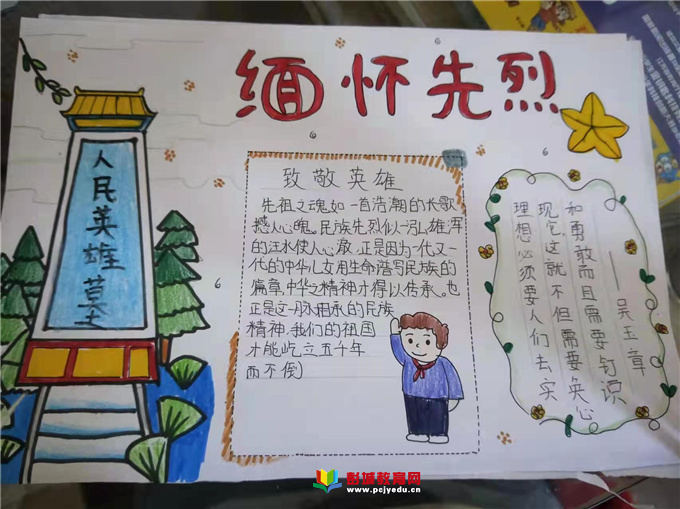 缅怀先烈
人民英雄墓
致敬英雄
先祖之魂如一首浩潮的长歌
撼人心魄。民族先烈似一泓雄浑
的汪水使人心激,正是因为一代又一
代的中华儿女用生命谱写民族的
篇章,中华之精神才得以传承。也
正是这一脉相承的民族
精神,我们的祖国
才能屹立五千年
而不倒
理想必须要人们去实
现它,这就不但需要决心
和勇敢而且需要知识
——吴玉章
彭城教育网
www.pcjyedu.cn